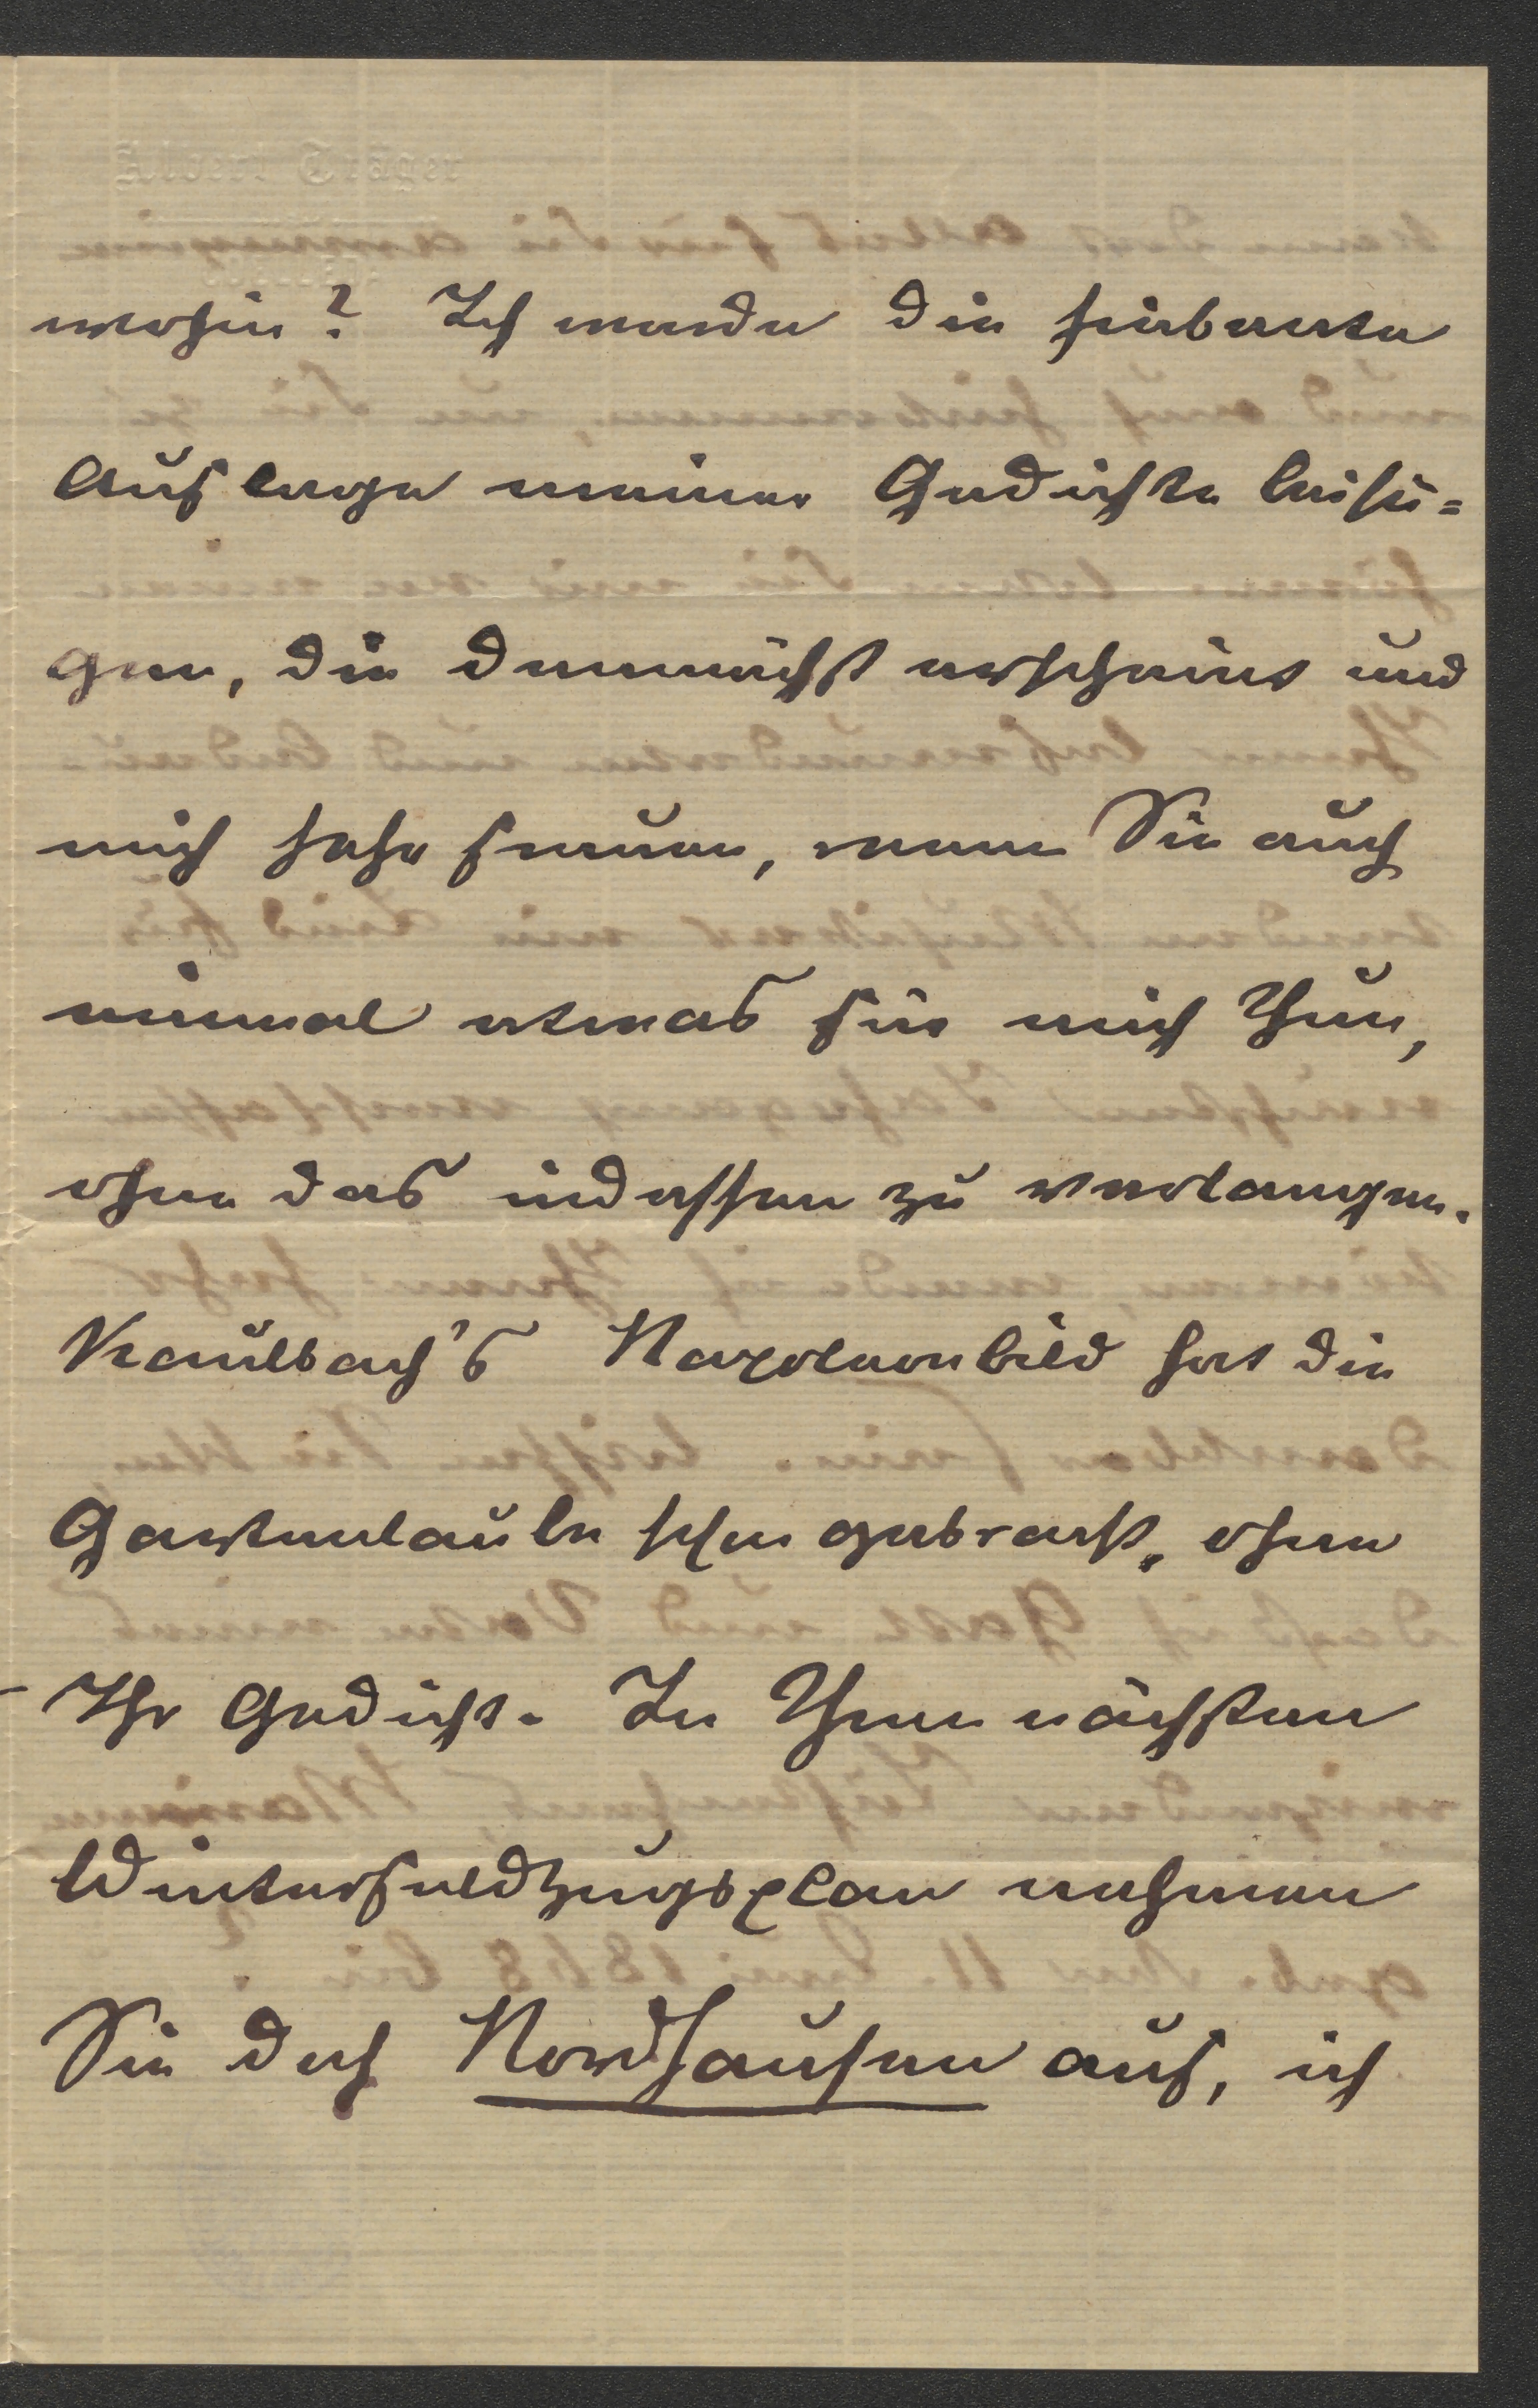 Albert Träger
wohin? Ich werde die siebente
Auflage meiner Gedichte beifü=
gen, die demnächst erscheint und
mich sehr freuen, wenn Sie auch
einmal etwas für mich thun,
ohne das indessen zu verlangen.
Kaulbach's Napoleonbild hat die
Gartenlaube schon gebracht, ohne
Ihr Gedicht. In Ihren nächsten
Winterfeldzugsplan nehmen
Sie doch Nordhausen auf, ich